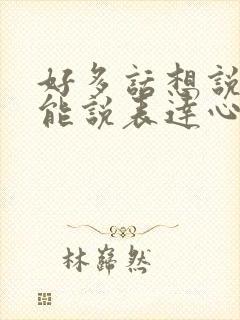 好多話想說
能說表達心
林巋然